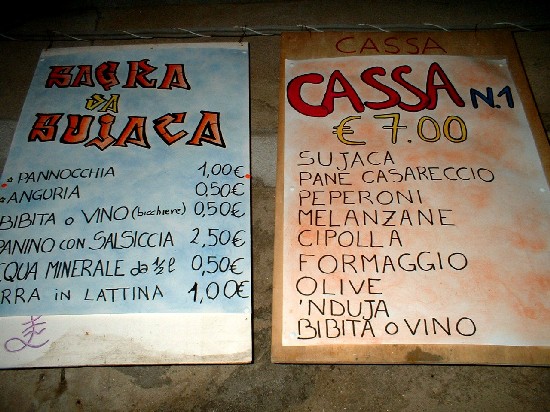 SAGRA
DA
SUJACA
PANNOCCHIA 1,00€
ANGURIA 0,50€
BIBITA O VINO (bicchiere) 0,50€
PANINO CON SALSICCIA 2,50€
CQUA MINERALE da ½ l 0,50€
RRA IN LATTINA 1,00€
CASSA
CASSA N.1
€ 7.00
SUJACA
PANE CASARECCIO
PEPERONI
MELANZANE
CIPOLLA
FORMAGGIO
OLIVE
'NDUJA
BIBITA O VINO